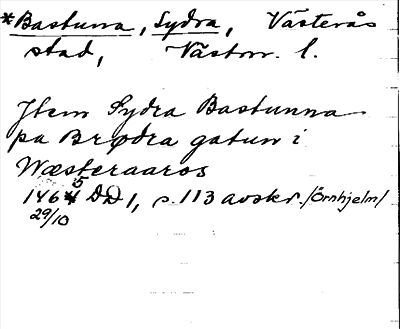 *Bastunna, Sydra, Västerås
stad, Västm. l.
Jtem Sydra Bastunna
pa Brødra gatun i
Wæsteraaros
1465 DD 1, s. 113 avskr. /Örnhjelm/
29/10